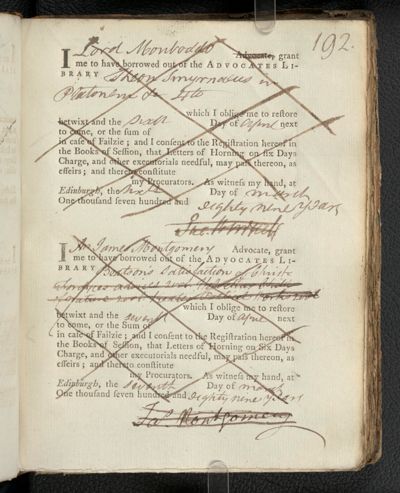 192.
I Lord Monboddo Advocate, grant
me to have borrowed out of the ADVOCATES LI-
BRARY Theon Smyrnaeus in
Platonem &
which I oblige me to reſtore
betwixt and the Sixth Day of April next
to come, or the sum of
in caſe of Failzie; and I conſent to the Regiſtration hereof in
the Books of Seſſion, that Letters of Horning on ſix Days
Charge, and other executorials needful, may paſs thereon, as
effeirs; and thereto conſtitute
my Procurators. As witneſs my hand, at
Edinburgh, the Sixth Day of March
One thouſand ſeven hundred and eighty nine Years
I Mr James Montgomery Advocate, grant
me to have borrowed out of the ADVOCATES LI-
BRARY Satisfaction of Christ
which I oblige me to reſtore
betwixt and the seventh Day of April next
to come, or the Sum of
in caſe of Failzie; and I conſent to the Regiſtration hereof in
the Books of Seſſion, that Letters of Horning on Six Days
Charge, and other executorials needful, may paſs thereon, as
effeirs; and thereto conſtitute
my Procurators. As witneſs my hand, at
Edinburgh, the Seventh Day of March
One thouſand ſeven hundred and eighty nine Years
Jas Montgomery